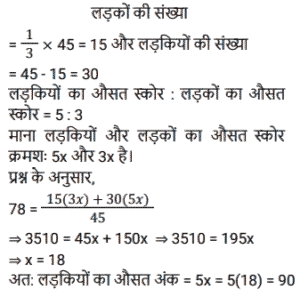 लड़कों की संख्या
= 1/3 × 45 = 15 और लड़कियों की संख्या
= 45 - 15 = 30
लड़कियों का औसत स्कोर : लड़कों का औसत
स्कोर = 5 : 3
माना लड़कियों और लड़कों का औसत स्कोर
क्रमशः 5x और 3x है।
प्रश्न के अनुसार,
78 = (15(3x) + 30(5x))/45
⇒ 3510 = 45x + 150x ⇒ 3510 = 195x
⇒ x = 18
अत: लड़कियों का औसत अंक = 5x = 5(18) = 90